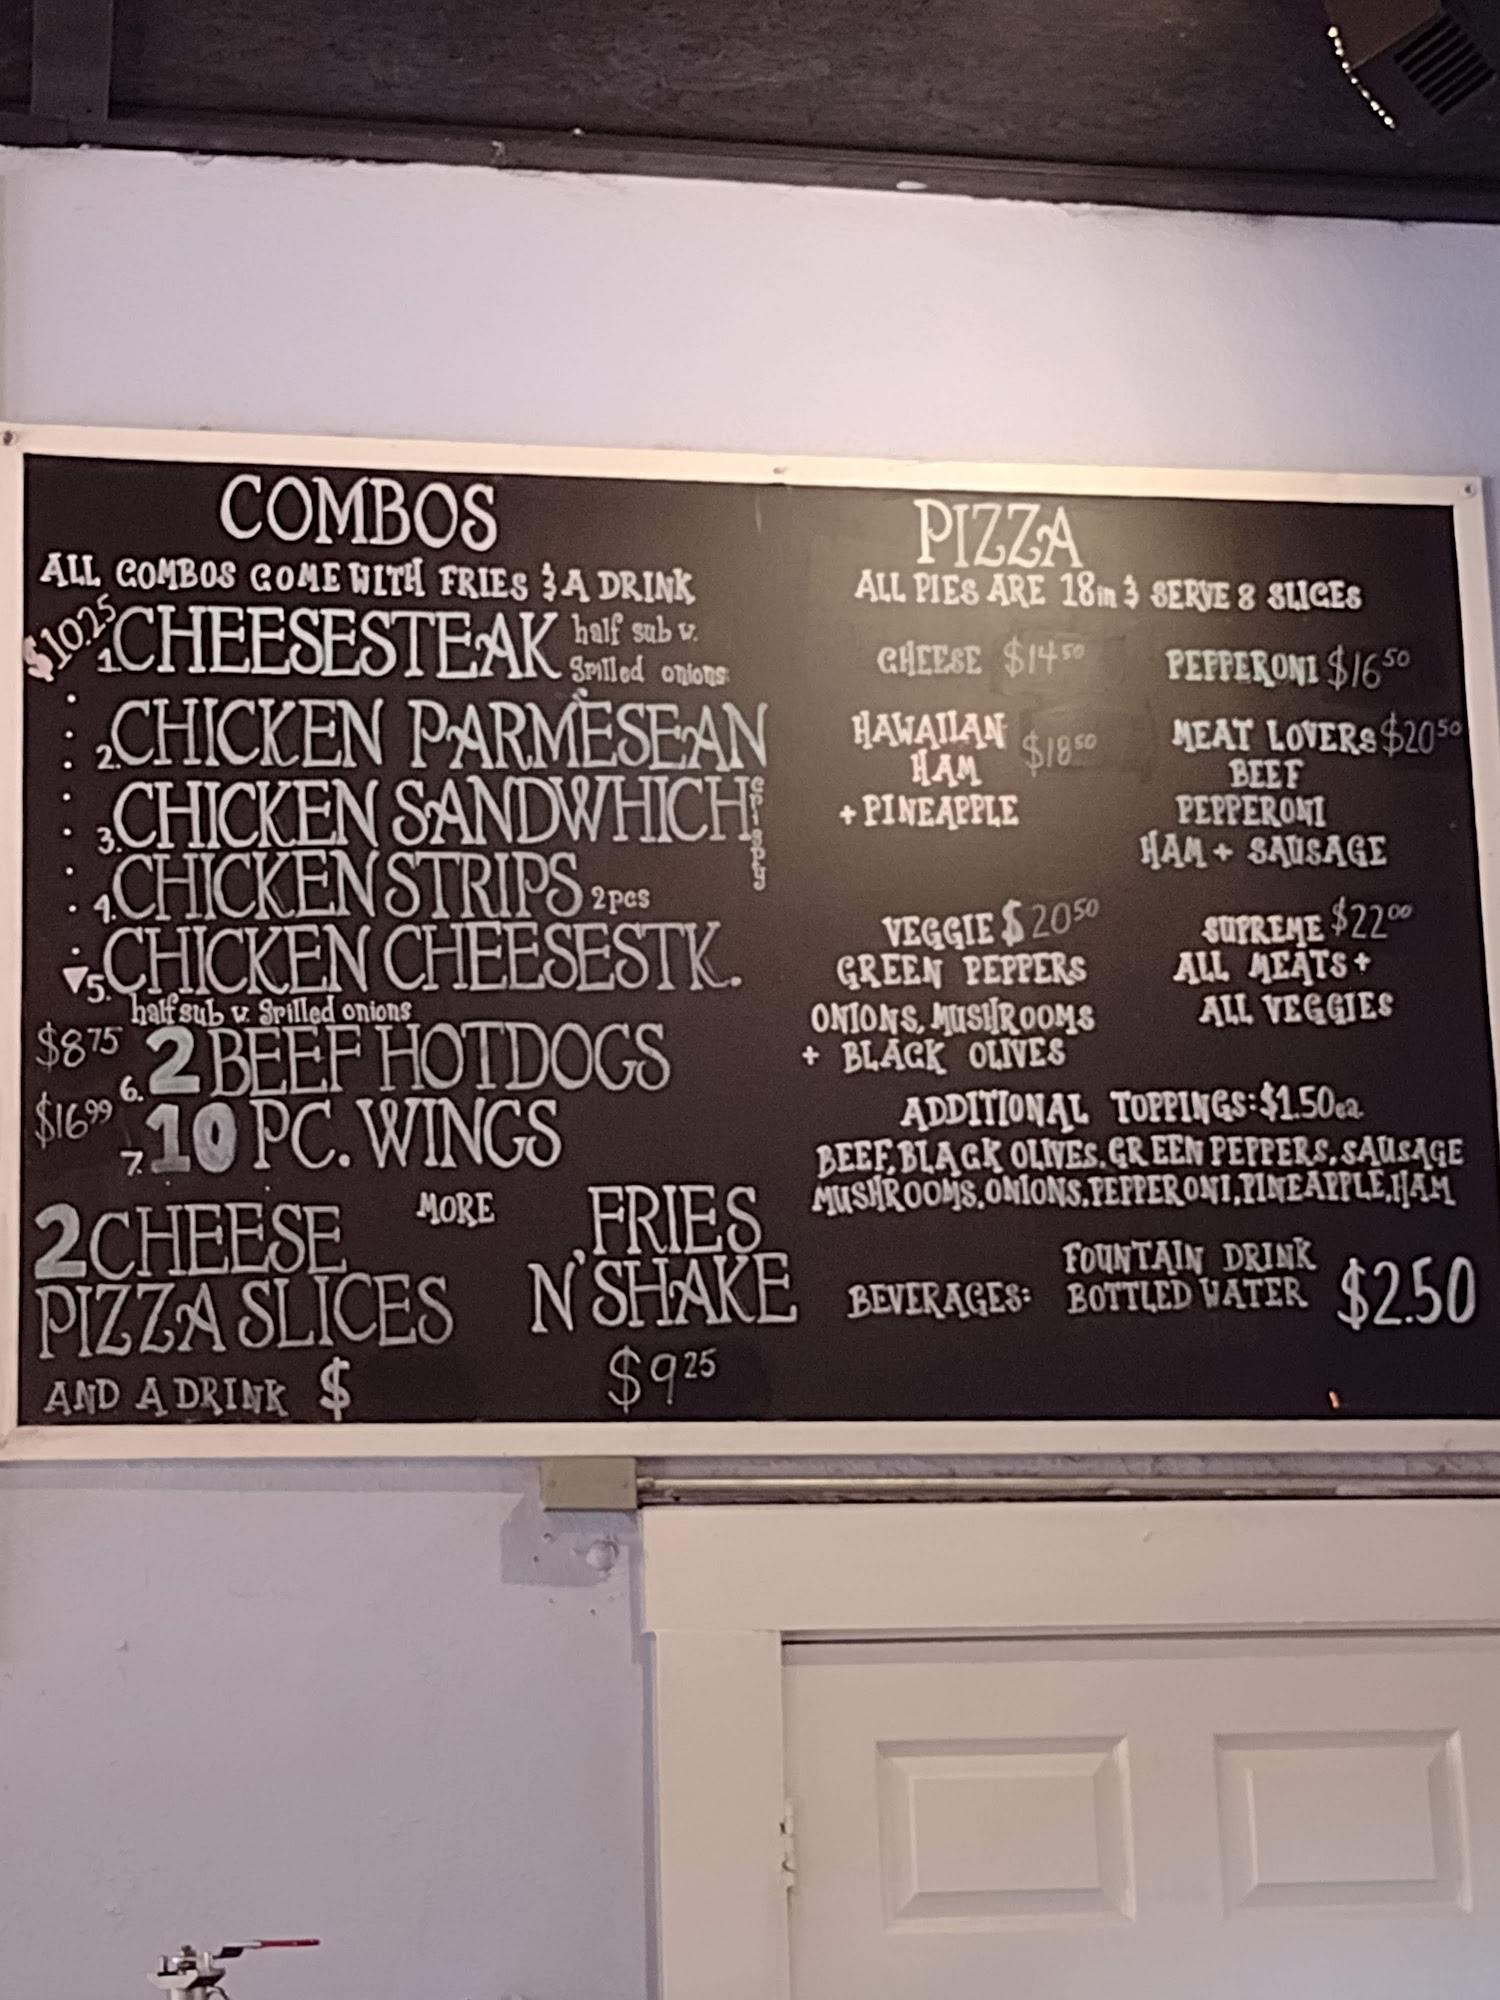 COMBOS
ALL COMBOS COME WITH FRIES & A DRINK
$10.25
1. CHEESESTEAK half sub w. Grilled onions
2. CHICKEN PARMESEAN
3. CHICKEN SANDWHICH crispy
4. CHICKEN STRIPS 2pcs
5. CHICKEN CHEESESTK.
half sub w. Grilled onions
$8.75 6. 2 BEEF HOTDOGS
$16.99 7. 10 PC. WINGS
MORE
2 CHEESE
PIZZA SLICES
AND A DRINK $
FRIES
N' SHAKE
$9.25
PIZZA
ALL PIES ARE 18in & SERVE 8 SLICES
CHEESE $14.50
PEPPERONI $16.50
HAWAIIAN $18.50
HAM
+ PINEAPPLE
MEAT LOVERS $20.50
BEEF
PEPPERONI
HAM + SAUSAGE
VEGGIE $20.50
GREEN PEPPERS
ONIONS, MUSHROOMS
+ BLACK OLIVES
SUPREME $22.00
ALL MEATS +
ALL VEGGIES
ADDITIONAL TOPPINGS: $1.50ea.
BEEF, BLACK OLIVES, GREEN PEPPERS, SAUSAGE
MUSHROOMS, ONIONS, PEPPERONI, PINEAPPLE, HAM
BEVERAGES:
FOUNTAIN DRINK
BOTTLED WATER
$2.50